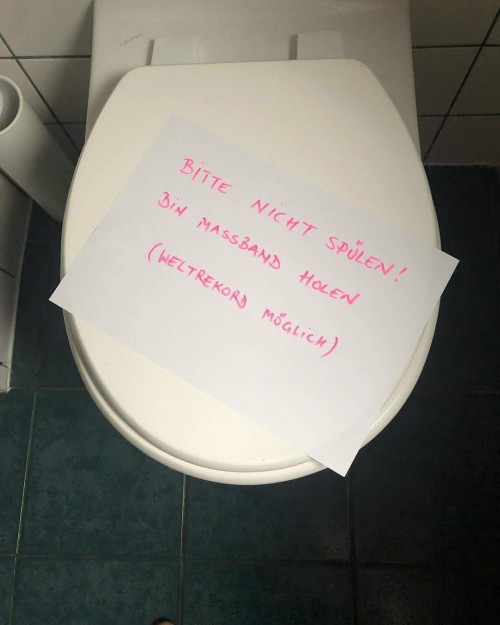 BITTE NICHT SPÜLEN!
BIN MASSBAND HOLEN
(WELTREKORD MÖGLICH)